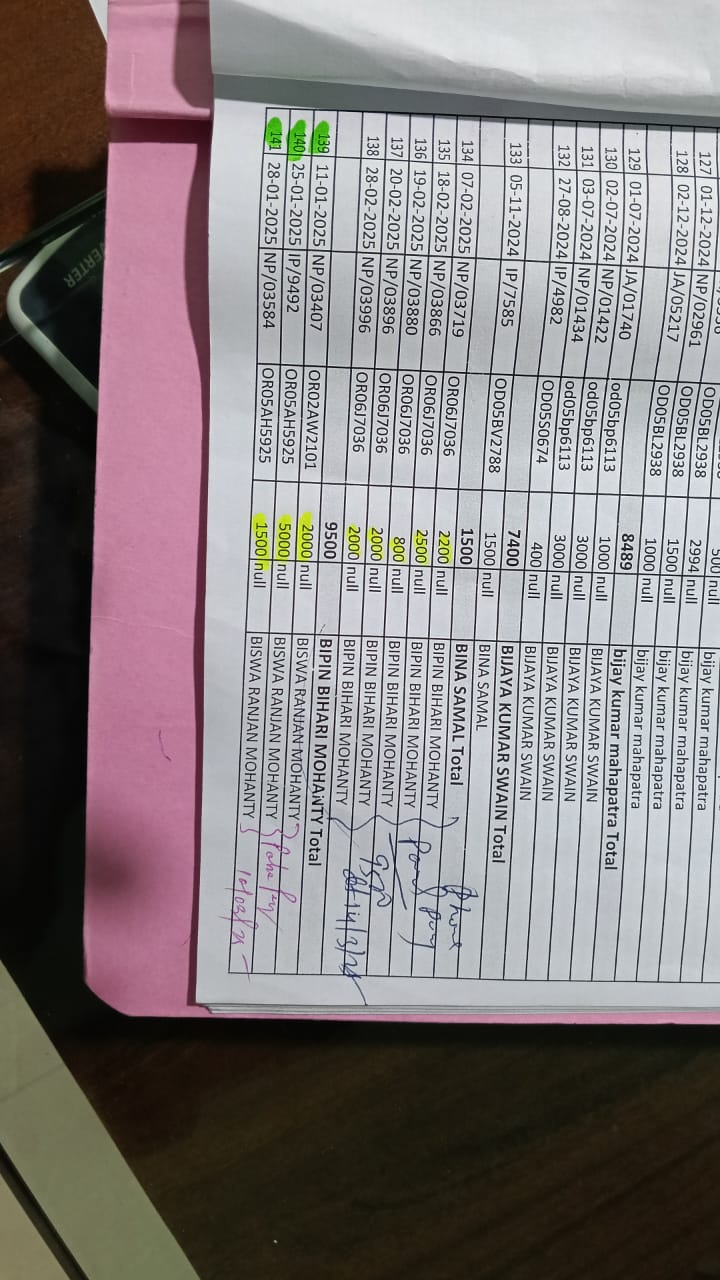 500 null
OD05BL2938 2994 null bijay kumar mahapatra
127 01-12-2024 NP/02961 OD05BL2938 1500 null bijay kumar mahapatra
128 02-12-2024 JA/05217 OD05BL2938 1000 null bijay kumar mahapatra
8489 bijay kumar mahapatra Total
129 01-07-2024 JA/01740 od05bp6113 1000 null BIJAYA KUMAR SWAIN
130 02-07-2024 NP/01422 od05bp6113 3000 null BIJAYA KUMAR SWAIN
131 03-07-2024 NP/01434 od05bp6113 3000 null BIJAYA KUMAR SWAIN
132 27-08-2024 IP/4982 OD05S0674 400 null BIJAYA KUMAR SWAIN
7400 BIJAYA KUMAR SWAIN Total
133 05-11-2024 IP/7585 OD05BV2788 1500 null BINA SAMAL
1500 BINA SAMAL Total
134 07-02-2025 NP/03719 OR06J7036 2200 null BIPIN BIHARI MOHANTY
135 18-02-2025 NP/03866 OR06J7036 2500 null BIPIN BIHARI MOHANTY
136 19-02-2025 NP/03880 OR06J7036 800 null BIPIN BIHARI MOHANTY
137 20-02-2025 NP/03896 OR06J7036 2000 null BIPIN BIHARI MOHANTY
138 28-02-2025 NP/03996 OR06J7036 2000 null BIPIN BIHARI MOHANTY
9500 BIPIN BIHARI MOHANTY Total
139 11-01-2025 NP/03407 OR02AW2101 2000 null BISWA RANJAN MOHANTY
140 25-01-2025 IP/9492 OR05AH5925 5000 null BISWA RANJAN MOHANTY
141 28-01-2025 NP/03584 OR05AH5925 1500 null BISWA RANJAN MOHANTY
Phone
pay